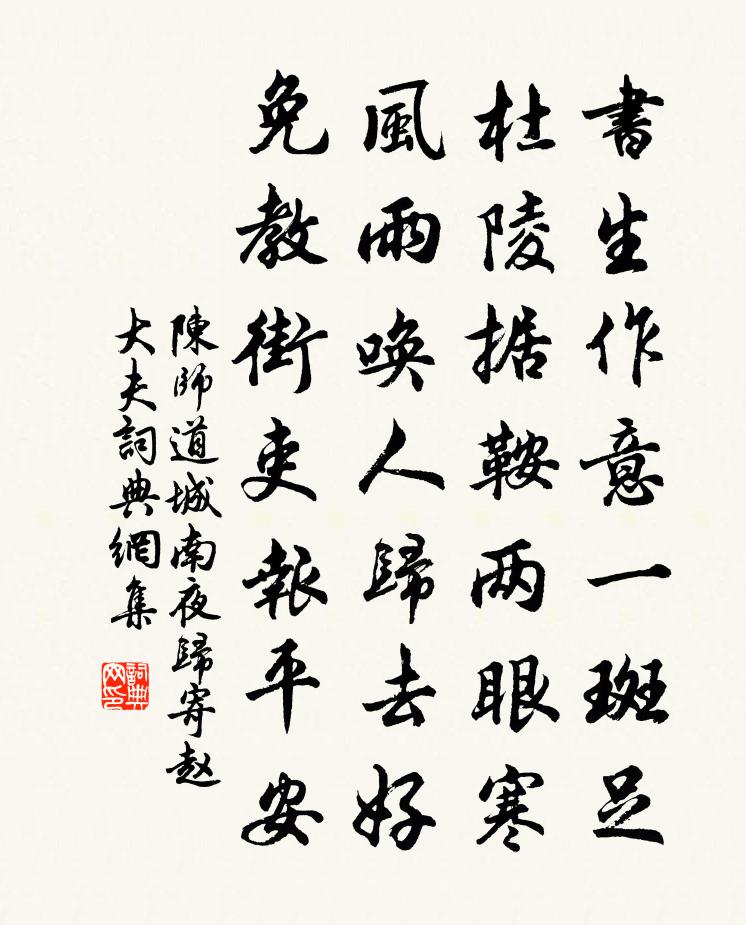 書生作意一斑足
杜陵据鞍两眼寒
風雨喚人歸去好
免教街吏報平安
陳師道城南夜歸寄赵
大夫詞典網集
詞典网印